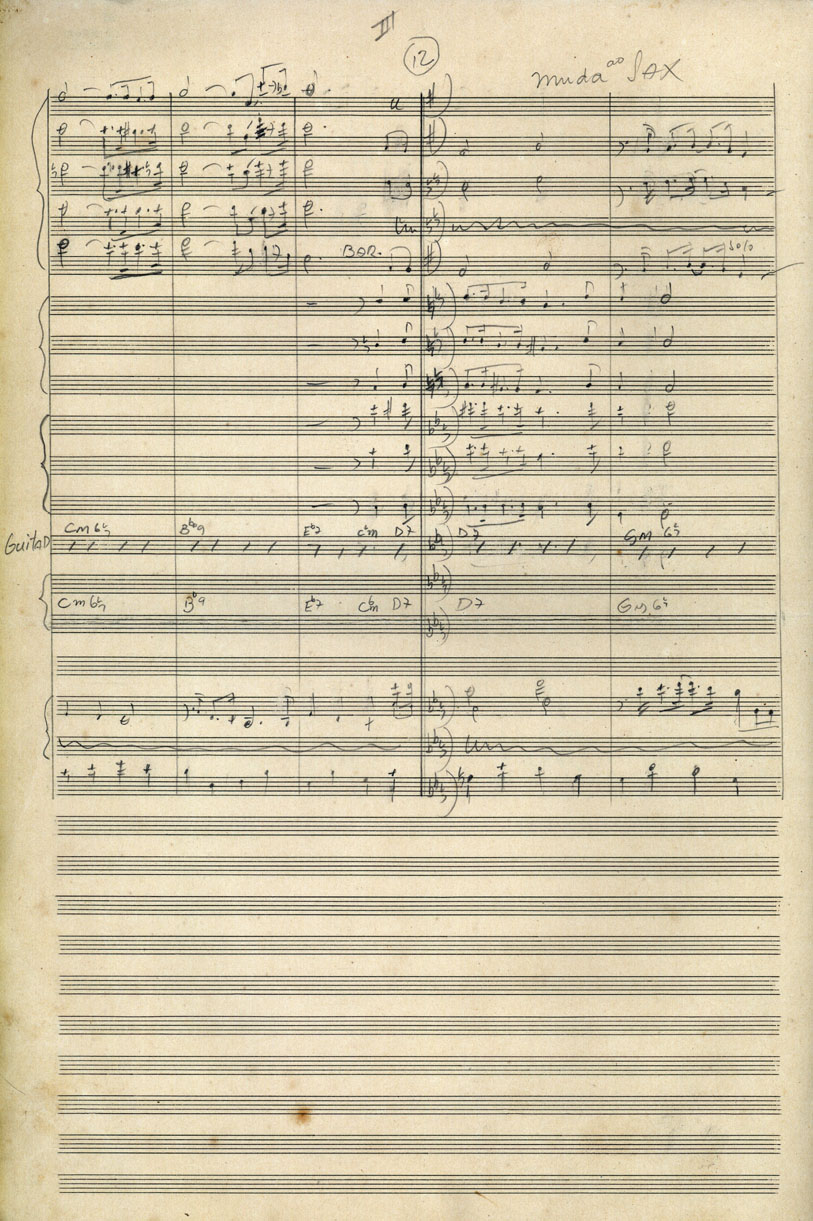 III
12
muda ao SAX
BAR.
solo
Guitar
Cm6 Bb9 Eb7 Cm D7 D7 Gm6
Cm6 B9 Eb7 Cm D7 D7 Gm6